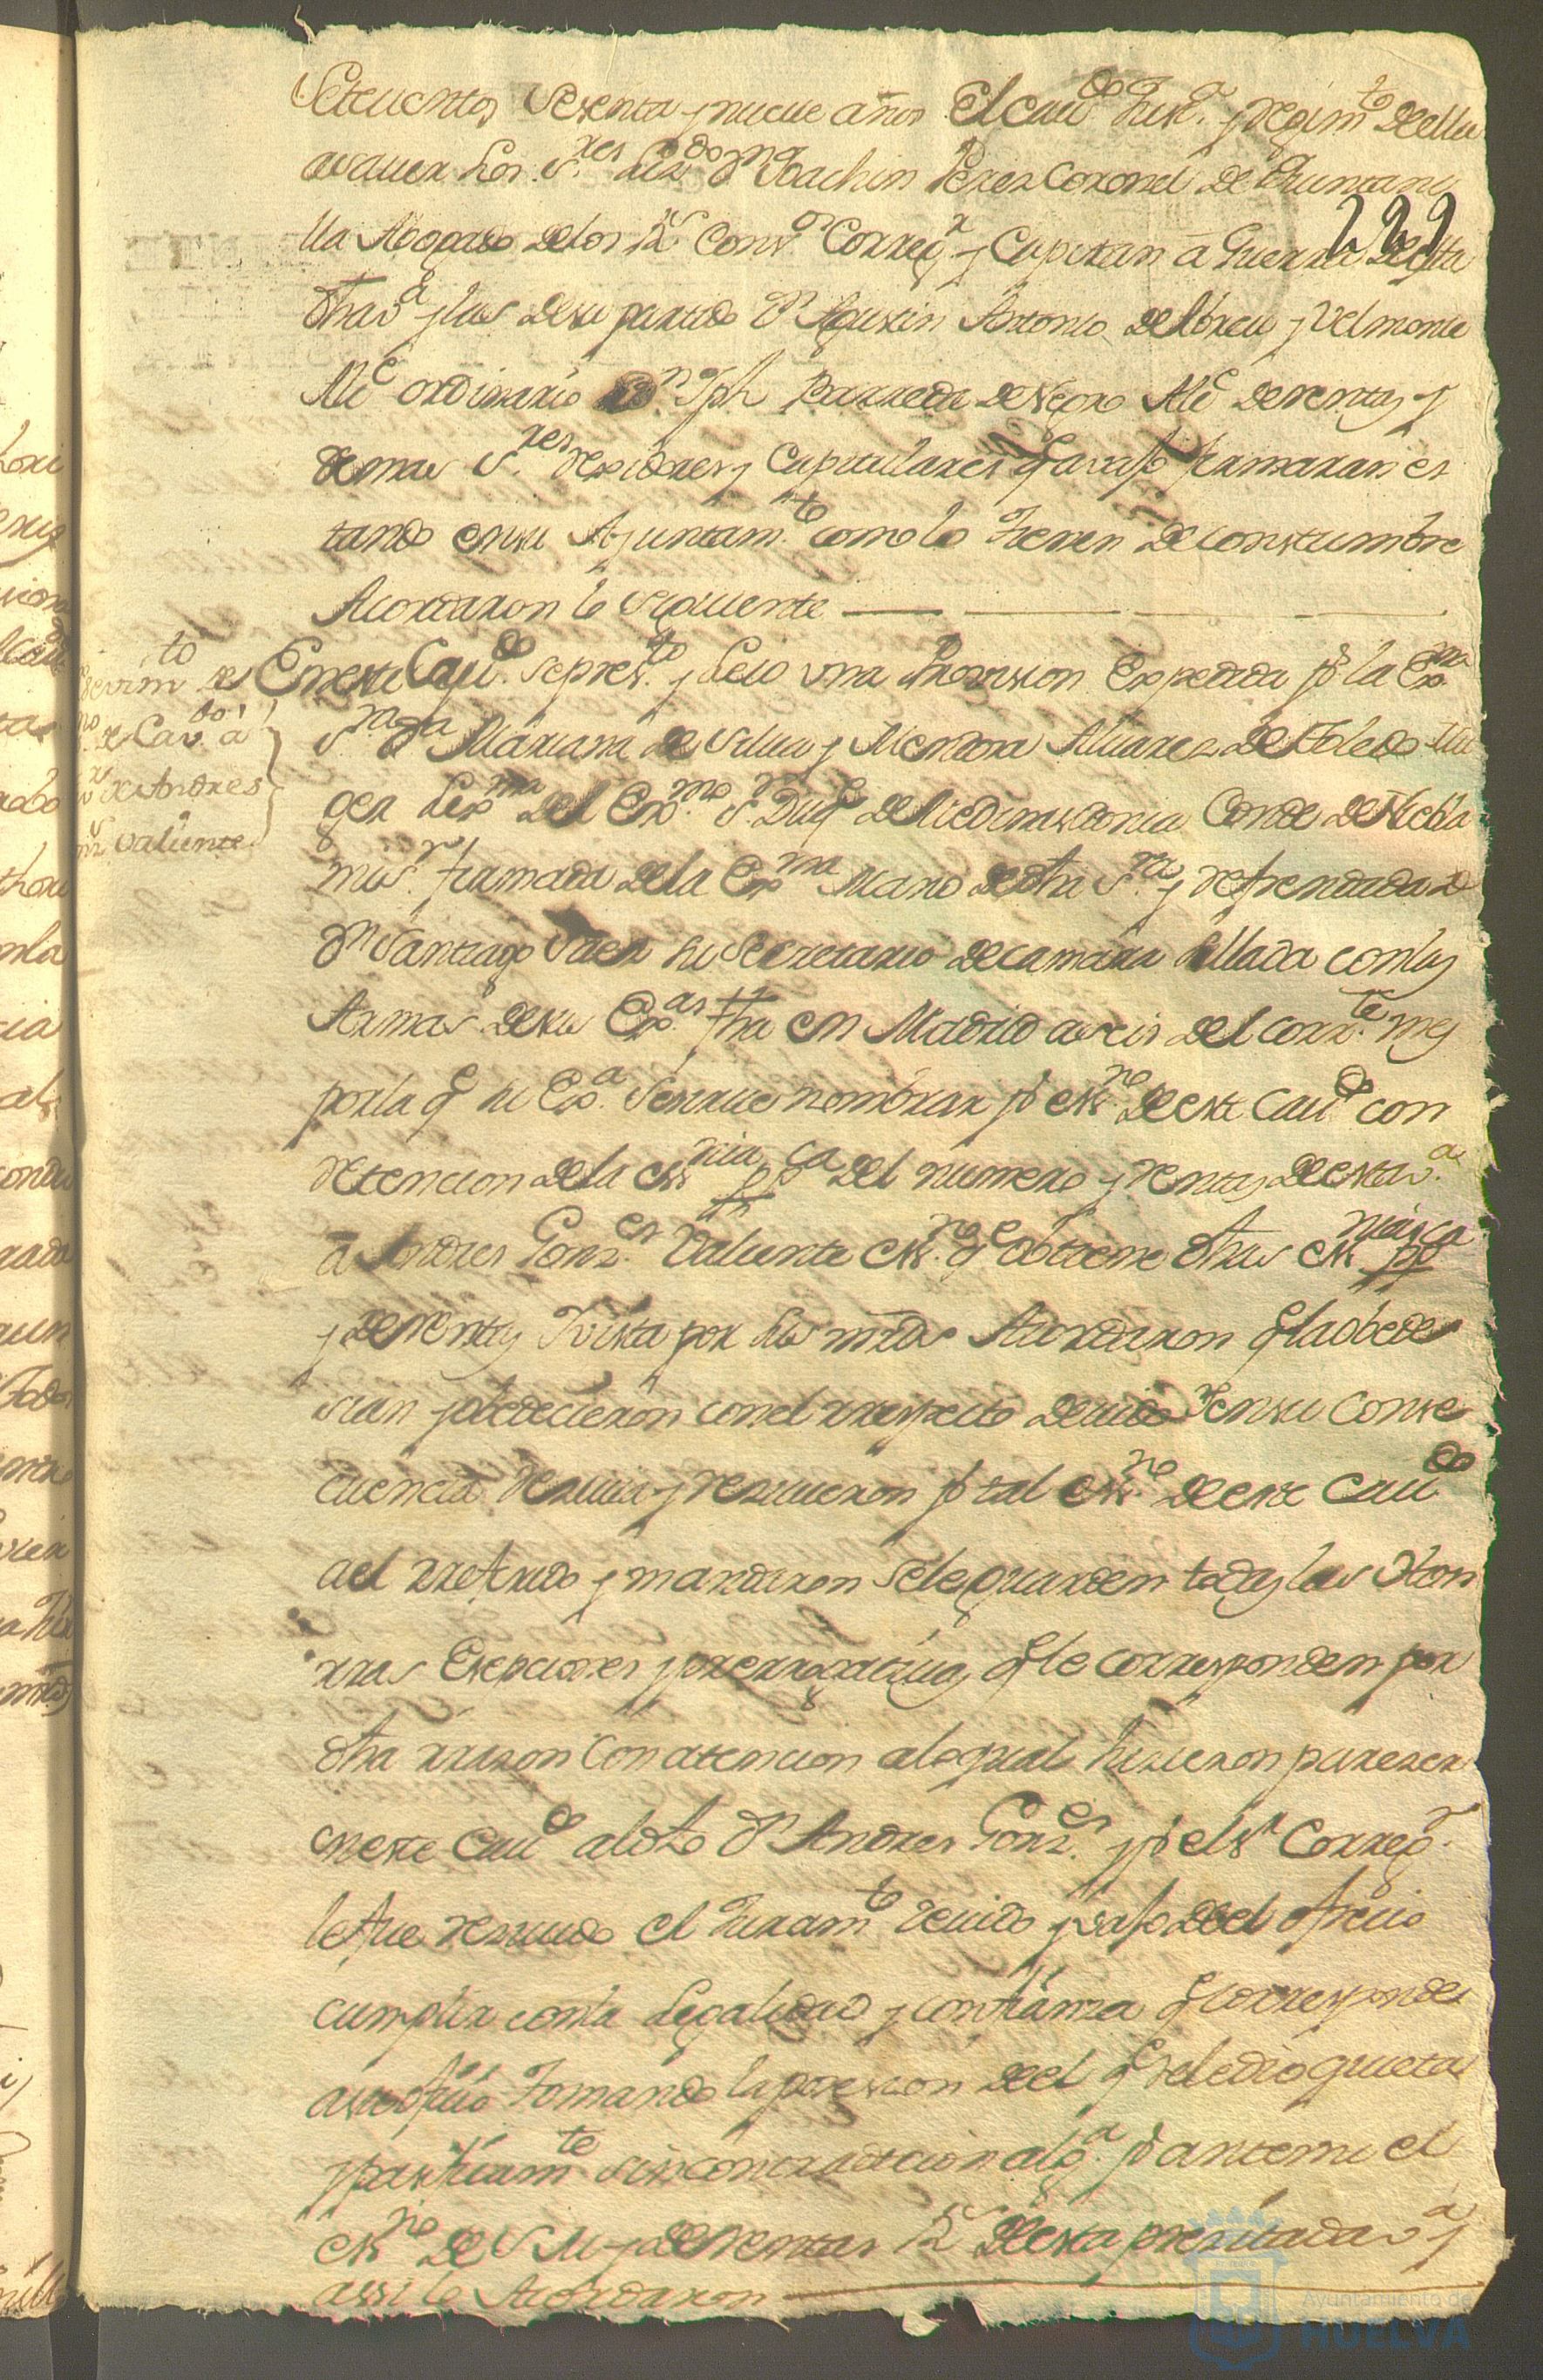 Setecientos sesenta y nueve años El Cav.do Just.a y Regim.to de ella
a saver los S.res Liz.do D.n Joachin Perez Coronel de Quintani
222
lla Abogado de los R.s Cons.os Correg.r y Capitan a Guerra de esta
dha v.a y las de su partido D.n Agustin Antonio de Abreu y Velmonte
Alc.e ordinario D.n Jph Barreda de Negro Alc.e de rentas y
demas S.res Rexidores y Capitulares q.e avajo firmaran es
tando en su Ayuntam.to como lo tienen de constumbre
Acordaron lo siguiente
recivim.to de
ss.no de Cav.do a
Andres
Gonz.s Valiente
En este Cav.do se pres.to y leio una Provision Expedida p.r la Ex.ma
S.ra D.a Mariana de Silva y Mendoza Alvarez de Toledo Mu
ger Lex.ma del Ex.mo S.r Duq.e de Medinasidonia Conde de Niebla
mi s.r firmada de la Ex.ma Mano de dha S.ra y refrendada de
D.n Santiago Saez su Secretario de camara sellada con las
Armas de sus Ex.as fha en Madrid a seis del corr.te mes
por la q.e su Ex.a se sirve nombrar p.r ess.no de este Cav.do con
retencion de la ess.nia pp.ca del numero y rentas de esta v.a
a Andres Gonz.es Valiente ess.no q.e obtiene dhas ess.nias pp.ca
y de rentas Y vista por sus mrds Acordaron q.e la obede
sian y obedecieron con el rrespecto devido Y en su conse
cuencia resivia y resivieron p.r tal ess.no de este Cav.do
a el rreferido y mandaron se le guarden todas las Hon
rras Esepciones y prerrogativas q.e le corresponden por
dha rrazon Con atencion a lo qual hisieron pareser
en este Cav.do a lo dho D.n Andres Gonz.es y p.r el s.r Correg.r
le fue resivido el Juram.to devido y vajo de el ofrecio
cumplir con la Legalidad y confianza q.e corresponde
a su oficio Tomando la posesion de el q.e se le dio quieta
y pasificam.te sin contradicion alg.a p.r ante mi el
ess.no de S M y de rentas R.s de esta presitada v.a y
assi lo Acordaron
Ayuntamiento de
HUELVA